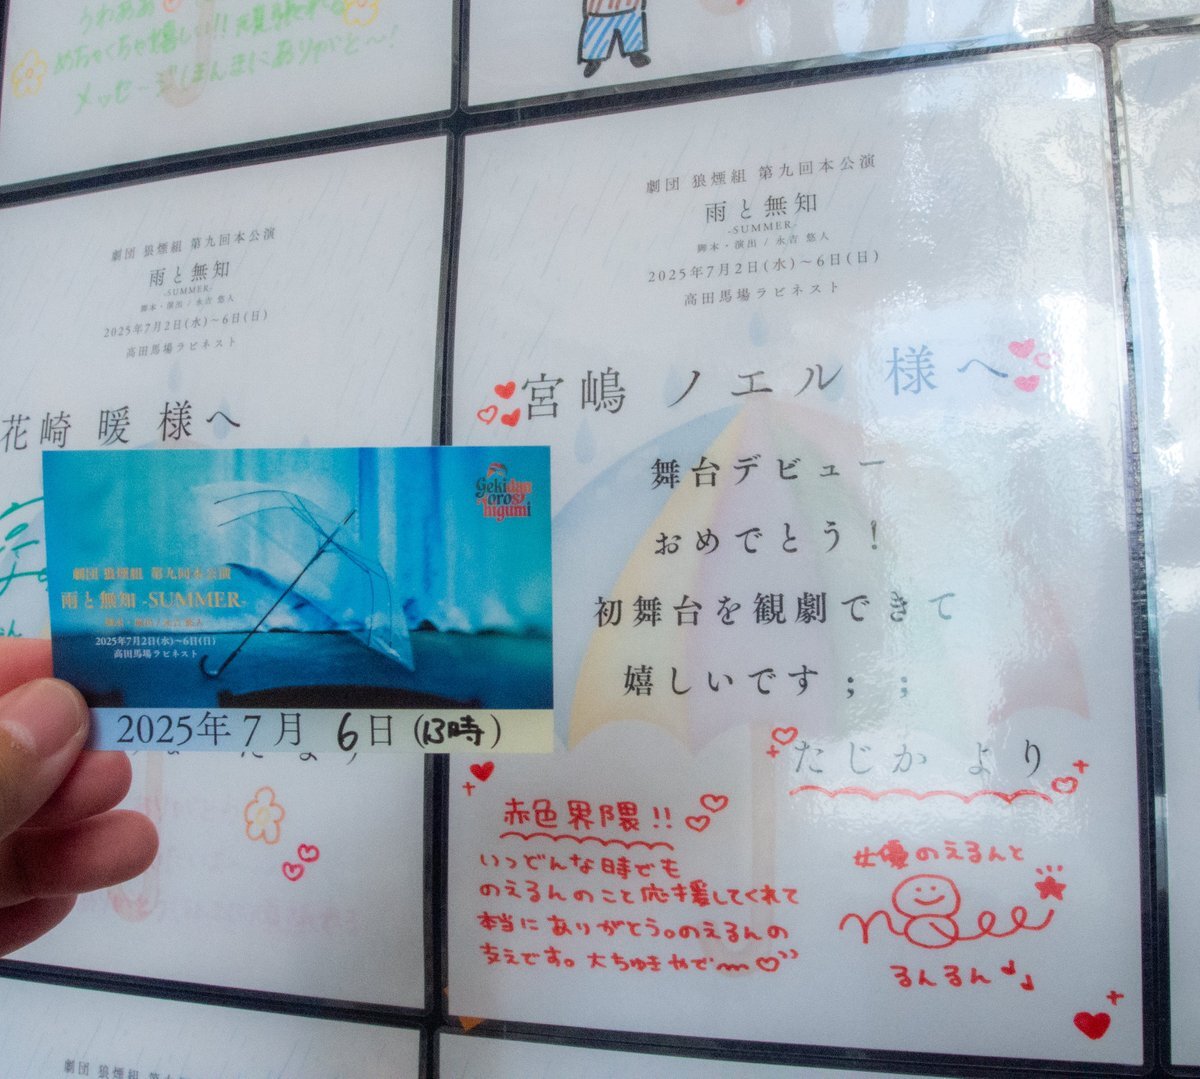 うわああ
めちゃくちゃ嬉しい!! 頑張れる
メッセージほんまにありがと〜!
劇団 狼煙組 第九回本公演
雨と無知
-SUMMER-
脚本・演出 / 永吉 悠人
2025年7月2日(水)~6日(日)
高田馬場ラビネスト
花崎 暖 様へ
劇団 狼煙組 第九回本公演
雨と無知
-SUMMER-
脚本・演出 / 永吉 悠人
2025年7月2日(水)~6日(日)
高田馬場ラビネスト
宮嶋 ノエル 様へ
舞台デビュー
おめでとう!
初舞台を観劇できて
嬉しいです;;
たじか より
赤色界隈!!
いっどんな時でも
のえるんのこと応援してくれて
本当にありがとう。のえるんの
支えです。大ちゅきやで
女優のえるんと
るんるん♪
Gekidan
oroshi
higumi
劇団 狼煙組 第九回本公演
雨と無知 -SUMMER-
脚本・演出 / 永吉 悠人
2025年7月2日(水)~6日(日)
高田馬場ラビネスト
2025年 7月 6日 (13時)
劇団 狼煙組 第